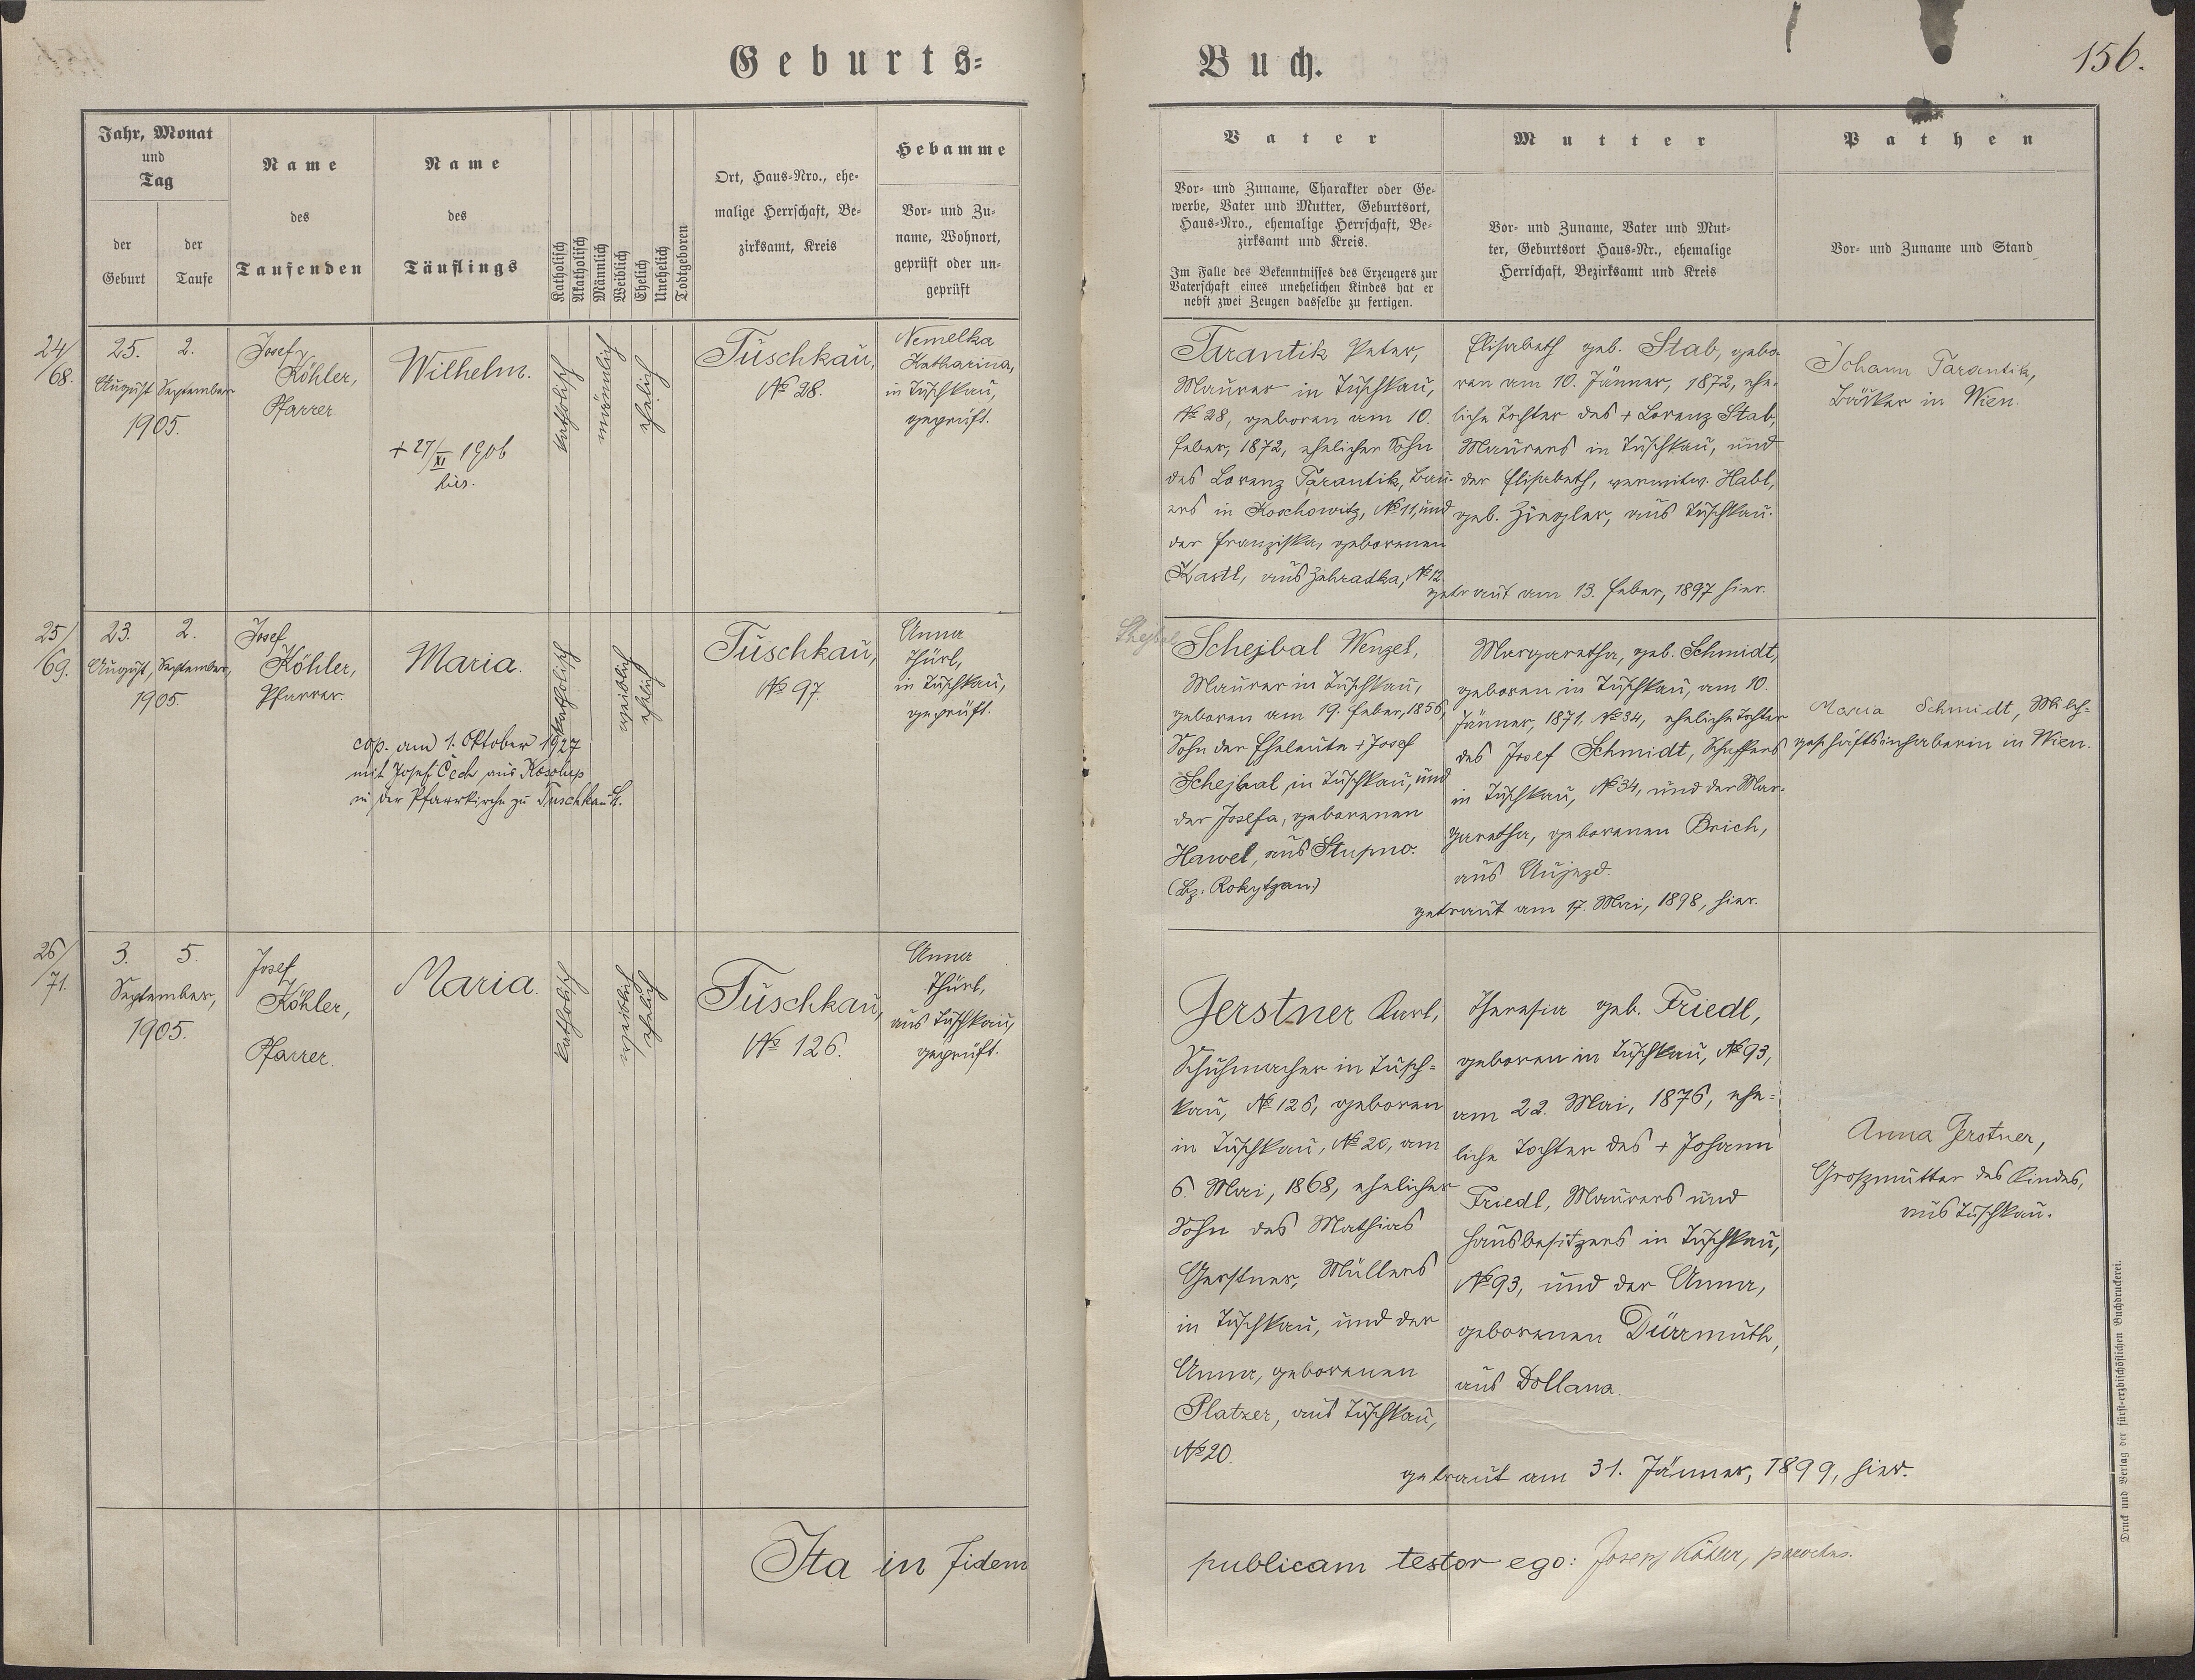 Geburts-Buch.
156.
Jahr, Monat
und
Tag
der
Geburt
der
Taufe
Name
des
Taufenden
Name
des
Täuflings
Katholisch
Akatholisch
Männlich
Weiblich
Ehelich
Unehelich
Todtgeboren
Ort, Haus-Nro., ehe-
malige Herrschaft, Be-
zirksamt, Kreis
Hebamme
Vor- und Zu-
name, Wohnort,
geprüft oder un-
geprüft
Vater
Vor- und Zuname, Charakter oder Ge-
werbe, Vater und Mutter, Geburtsort,
Haus-Nro., ehemalige Herrschaft, Be-
zirksamt und Kreis.
Im Falle des Bekenntnisses des Erzeugers zur
Vaterschaft eines unehelichen Kindes hat er
nebst zwei Zeugen dasselbe zu fertigen.
Mutter
Vor- und Zuname, Vater und Mut-
ter, Geburtsort Haus-Nr., ehemalige
Herrschaft, Bezirksamt und Kreis
Pathen
Vor- und Zuname und Stand
24/
/68.
25.
August
2.
September
1905.
Josef
Köhler,
Pfarrer
Wilhelm.
+ 27/XI 1906
hier.
katholisch
männlich
ehelich
Tuschkau,
№ 28.
Nemelka
Katharina,
in Tuschkau,
geprüft.
Tarantik Peter,
Maurer in Tuschkau,
№ 28, geboren am 10.
Feber, 1872, ehelicher Sohn
des Lorenz Tarantik, Bau-
ers in Koschowitz, № 11, und
der Franziska, geborenen
Kastl, aus Zahradka, № 12.
Elisabeth geb. Stab, gebo-
ren am 10. Jänner, 1872, ehe-
liche Tochter des + Lorenz Stab,
Maurers in Tuschkau, und
der Elisabeth, verwitw. Habl,
geb. Ziegler, aus Tuschkau.
getraut am 13. Feber, 1897 hier.
Johann Tarantik,
Bäcker in Wien.
25/
/69.
23.
August,
2.
September,
1905.
Josef
Köhler,
Pfarrer.
Maria.
cop. am 1. Oktober 1927
mit Josef Čech aus Kosolup
in der Pfarrkirche zu Tuschkau St.
katholisch
weiblich
ehelich
Tuschkau,
№ 97.
Anna
Thürl,
in Tuschkau,
geprüft.
Shejbal
Schejbal Wenzel,
Maurer in Tuschkau,
geboren am 19. Feber, 1856,
Sohn der Eheleute + Josef
Schejbal, in Tuschkau, und
der Josefa, geborenen
Hawel, aus Stupno.
(Bz. Rokytzan)
Margaretha, geb. Schmidt,
geboren in Tuschkau, am 10.
Jänner, 1871, № 34, eheliche Tochter
des Josef Schmidt, Schaffers
in Tuschkau, № 34, und der Mar-
garetha, geborenen Brich,
aus Aujezd.
getraut am 17. Mai, 1898, hier.
Maria Schmidt, Milch-
geschäftsinhaberin in Wien.
26/
/71.
3.
5.
September,
1905.
Josef
Köhler,
Pfarrer.
Maria.
katholisch
weiblich
ehelich
Tuschkau,
№ 126.
Anna
Thürl,
aus Tuschkau,
geprüft.
Gerstner Karl,
Schuhmacher in Tusch-
kau, № 126, geboren
in Tuschkau, № 20, am
6. Mai, 1868, ehelicher
Sohn des Mathias
Gerstner, Müllers
in Tuschkau, und der
Anna, geborenen
Platzer, aus Tuschkau,
№ 20.
Theresia geb. Friedl,
geboren in Tuschkau, № 93,
am 22. Mai, 1876, ehe-
liche Tochter des + Johann
Friedl, Maurers und
Hausbesitzers in Tuschkau,
№ 93, und der Anna,
geborenen Dürrmuth,
aus Dollana.
getraut am 31. Jänner, 1899, hier.
Anna Gerstner,
Großmutter des Kindes,
aus Tuschkau.
Ita in fidem publicam testor ego: Josef Köhler, parochus.
Druck und Verlag der fürst-erzbischöflichen Buchdruckerei.